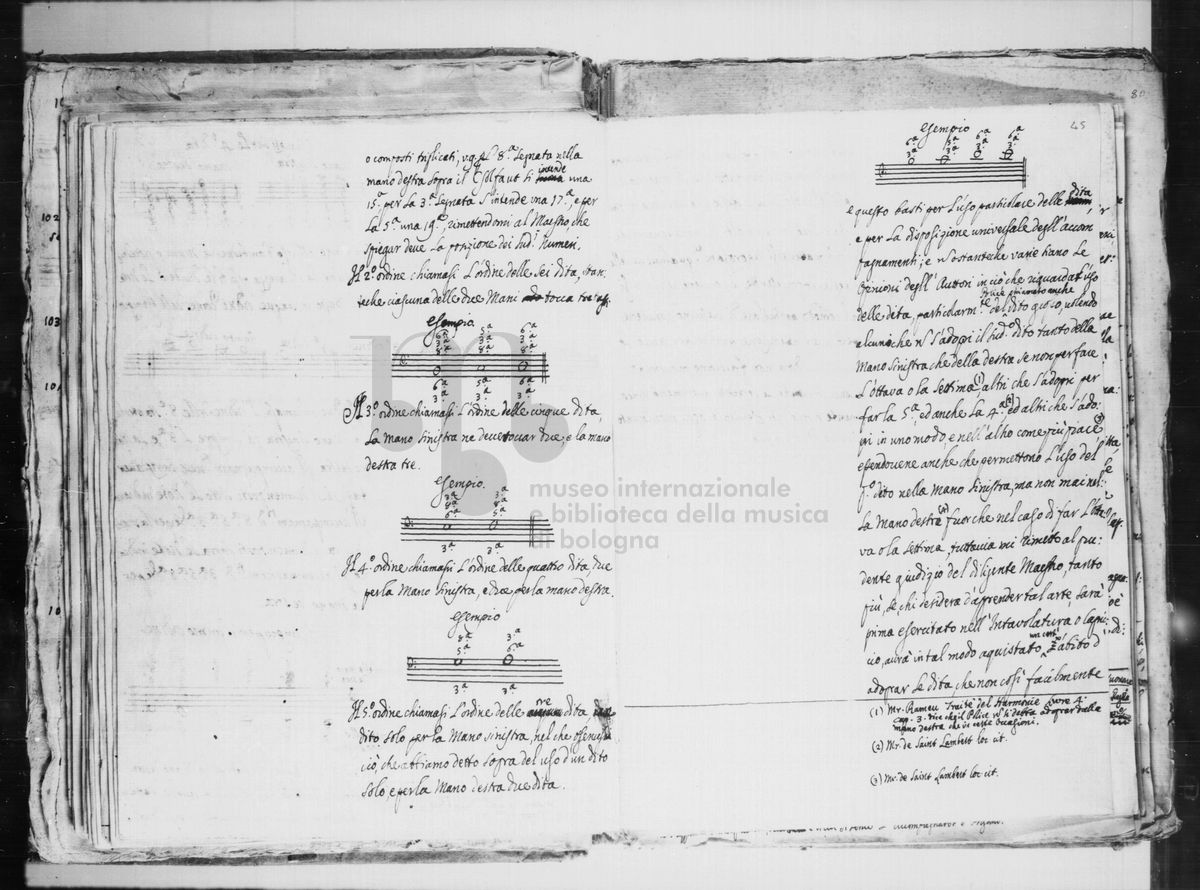 o composti triplicati, v.g. p l'8.ª segnata nella
mano destra sopra il Csolfaut si intende una
15.ª per la 3.ª segnata s'intende una 17.ª, e per
la 5.ª una 19.ª, rimettendomi al Maestro, che
spiegar deve la posizione dei sud.i Numeri.
Il 2.º ordine chiamasi l'ordine delle sei dita, stan-
teche ciascuna delle due Mani tocca tre
Esempio.
6.ª 5.ª 6.ª
3.ª 3.ª 3.ª
8.ª 8.ª 8.ª
6.ª 5.ª 6.ª
3.ª 3.ª 3.ª
Il 3.º ordine chiamasi l'ordine delle cinque dita,
la mano sinistra ne deve toccar due, e la mano
destra tre.
Esempio.
3.ª 3.ª
8.ª 8.ª
6.ª 5.ª
3.ª 3.ª
Il 4.º ordine chiamasi l'ordine delle quattro dita due
per la Mano sinistra, e due per la mano destra.
Esempio
8.ª 3.ª
5.ª 6.ª
3.ª 3.ª
Il 5.º ordine chiamasi l'ordine delle tre dita
dito solo per la Mano sinistra, nel che osservisi
ciò, che abbiamo detto sopra del uso d'un dito
solo, e per la Mano destra due dita.
45
80
Esempio
6.ª 6.ª 6.ª
3.ª 3.ª 3.ª
e questo basti per l'uso particolare delle dita,
e per la disposizione universale degl'accom
pagnamenti; e nostanteche varie siano le
Opinioni degl'Autori in ciò che riguarda l'uso
delle dita, particolarm.te del dito grosso, volendo
alcuno che n s'adopri il sud.º dito tanto della
Mano sinistra che della destra se non per fare
l'ottava o la settima (1), altri che s'adopri per
far la 5.ª, ed anche la 4.ª (2), ed altri che s'ado:
pri in uno modo, e nell'altro come più piace (3)
essendouene anche che permettono l'uso del
p.º dito nella Mano sinistra, ma non mai nel-
la Mano destra (4) fuorche nel caso di far l'otta
va o la settima, tuttavia mi rimetto al pru:
dente giudizio del diligente Maestro, tanto
più, se chi desidera d'apprender tal arte, sarà
prima esercitato nell'Intavolatura, o Capri:
cio, aurà in tal modo aquistato abito d
adoprar le dita che non così facilmente
(1) Mr. Rameu Traité del Harmonie Livre 4.
cap. 3. vice che il Police n si destra adoprar nella
mano destra che in certe occasioni.
(2) Mr. de Saint Lambert loc. cit.
(3) Mr. de Saint Lambert loc. cit.
102
103
museo internazionale
e biblioteca della musica
di bologna